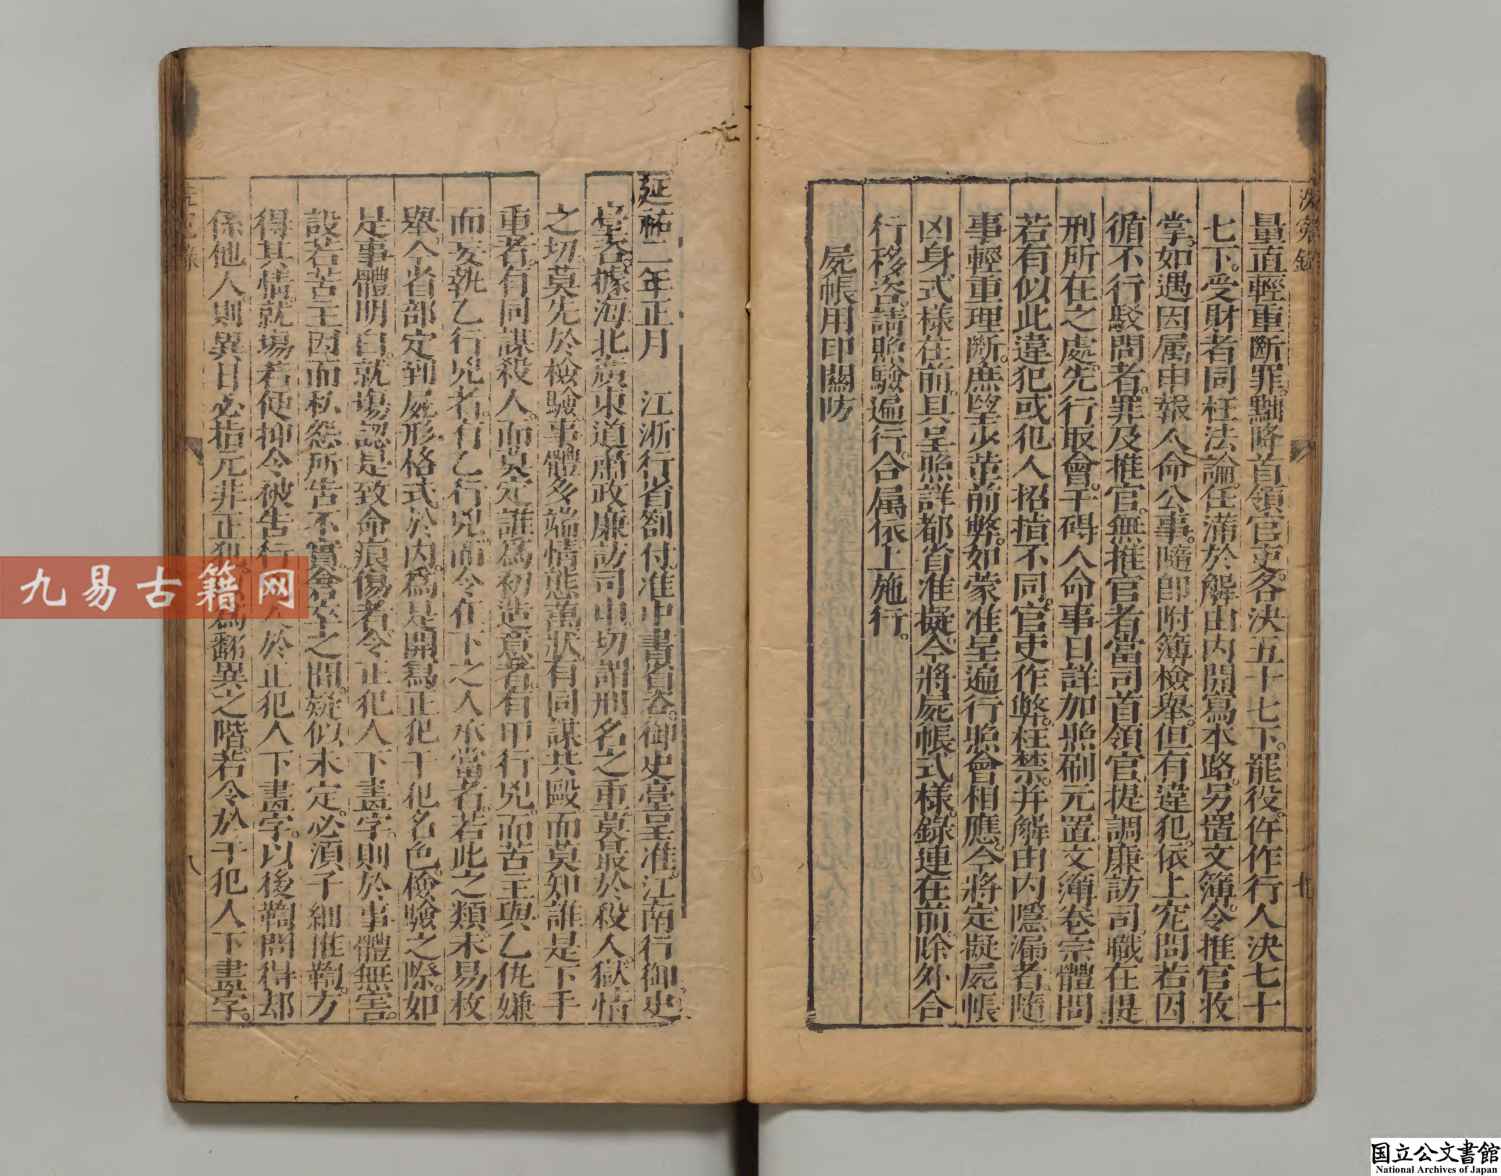 量直輕重斷罪黜略首領官吏各決五十七下罷役仵作行人決七十
七下受財者同枉法論任滿於解由內開寫水路另置文簿令推官收
掌如遇因属申報人命公事隨卽附簿檢舉但有違犯依上究問若因
循不行駁問者罪及推官無推官者當司首領官提調廉訪司職在提
刑所在之處先行取會干碍人命事目詳加照刷元置文簿卷宗體問
若有似此違犯或犯人招指不同官吏作弊枉禁幷解由內隱漏者隨
事輕重理斷庶望少革前弊如蒙准呈遍行照會相應今將定擬屍帳
凶身式樣在前具呈照詳都省准擬今將屍帳式樣錄連在前除外合
行移咨請照驗遍行合属依上施行
屍帳用印關防
延祐二年正月 江浙行省劄付准中書省咨御史臺呈准江南行御史
臺咨據海北廣東道肅政廉訪司申切謂刑名之重莫嚴於殺人獄情
之切莫先於檢驗事體多端情態萬狀有同謀共毆而莫知誰是下手
重者有同謀殺人而莫定誰爲初造意者有甲行兇而苦主與乙仇嫌
而妄執乙行兇者有乙行兇而令在下之人承當者若此之類未易枚
舉今省部定到屍形格式於內爲是開寫正犯干犯名色檢驗之際如
是事體明白就塲認是致命痕傷者令正犯人下畫字則於事體無害
設若苦主因而私怨所告不實倉卒之間疑似未定必須子細推鞫方
得其情就塲若便抑令被告行 人於正犯人下畫字以後鞫問得却
係他人則異日必指元非正犯 爲翻異之階若令於干犯人下畫字
洗寃錄
九
八
九易古籍网
国立公文書館
National Archives of Japan